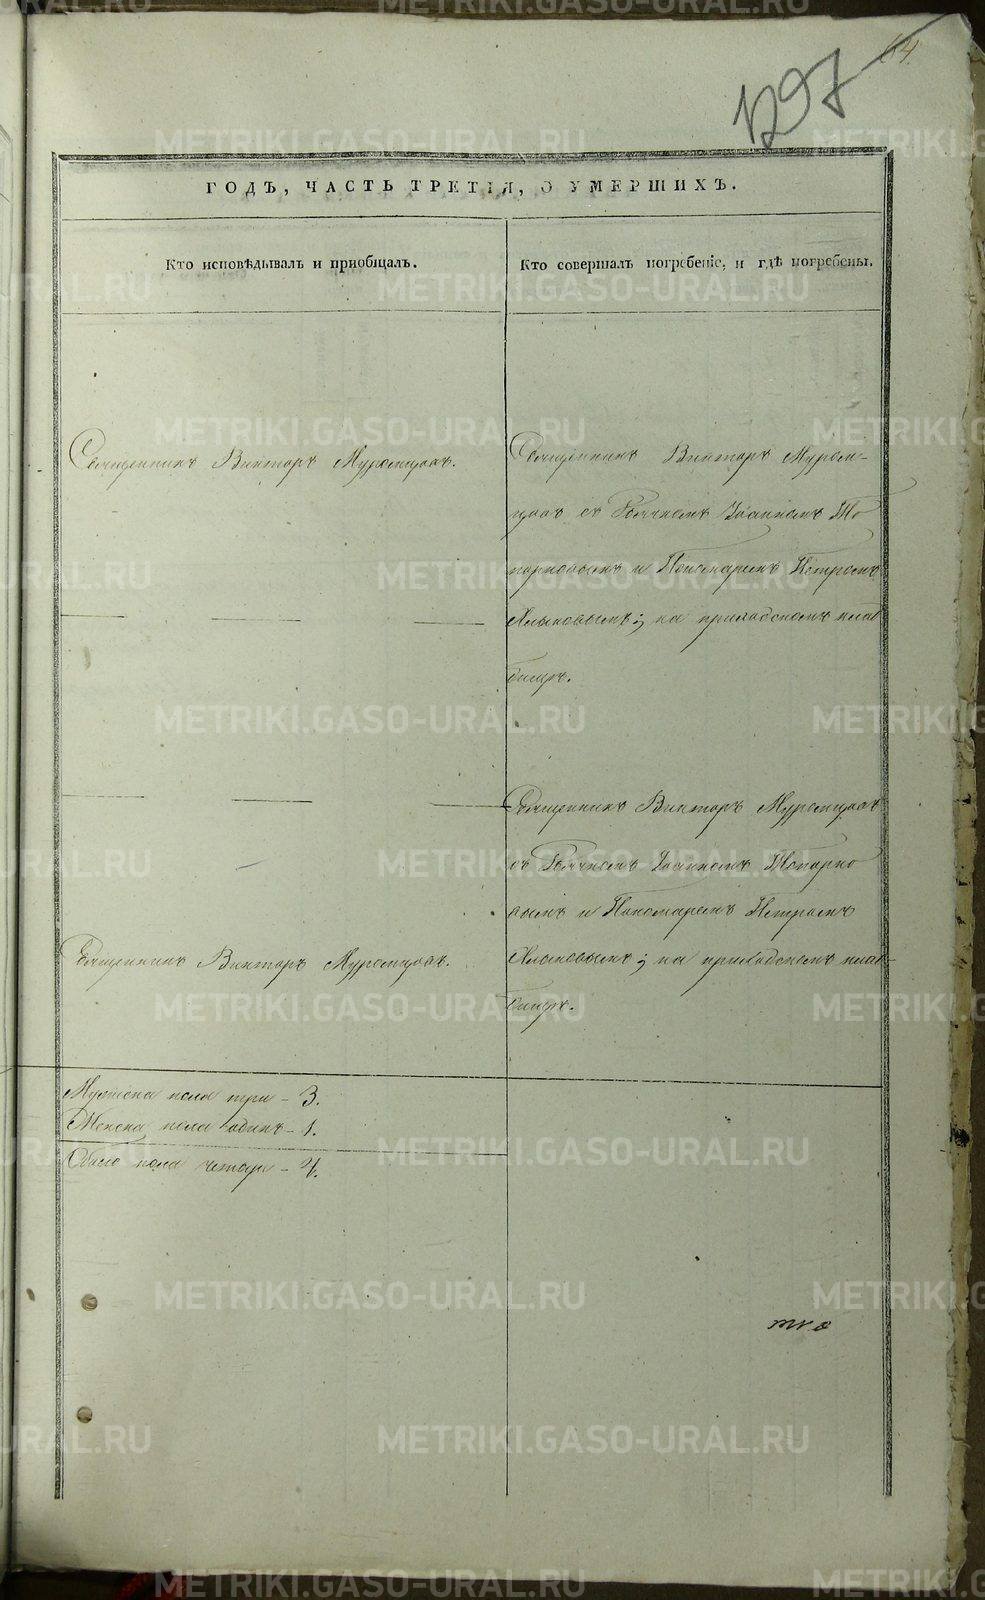 64
1297
ГОДЪ, ЧАСТЬ ТРЕТІЯ, О УМЕРШИХЪ.
Кто исповѣдывалъ и пріобщалъ.
Кто совершалъ погребеніе, и гдѣ погребены.
Священникъ Викторъ Муромцовъ.
Священникъ Викторъ Муром-
цовъ съ Дьячкомъ Іоанномъ То
порковымъ и Пономаремъ Петромъ
Хлыновымъ; на приходскомъ клад
бищѣ.
Священникъ Викторъ Муромцовъ
съ Дьячкомъ Іоанномъ Топорко
вымъ и Пономаремъ Петромъ
Священникъ Викторъ Муромцовъ.
Хлыновымъ; на приходскомъ клад-
бищѣ.
Мужеска пола три - 3.
Женска пола одинъ - 1.
Обоего пола четыре - 4.
METRIKI.GASO-URAL.RU